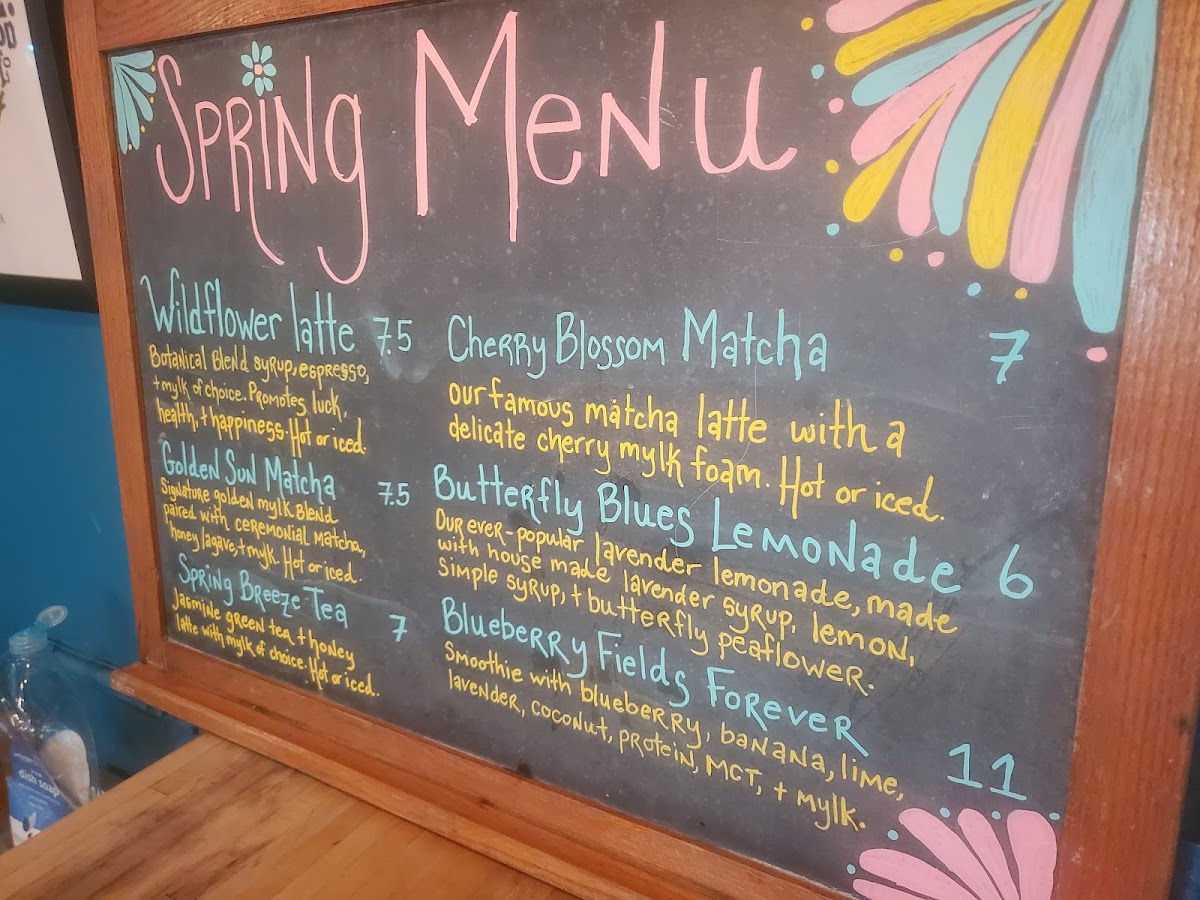 Spring Menu
Wildflower latte 7.5
Botanical Blend syrup, espresso,
+ mylk of choice. Promotes luck,
health, + happiness. Hot or iced.
Golden Sun Matcha 7.5
Signature golden mylk Blend
paired with ceremonial matcha,
honey/agave, + mylk. Hot or iced.
Spring Breeze Tea 7
Jasmine green tea + honey
latte with mylk of choice. Hot or iced.
Cherry Blossom Matcha 7
our famous matcha latte with a
delicate cherry mylk foam. Hot or iced.
Butterfly Blues Lemonade 6
Our ever-popular lavender lemonade, made
with house made lavender syrup, lemon,
simple syrup, + butterfly peaflower.
Blueberry Fields Forever 11
Smoothie with blueberry, banana, lime,
lavender, coconut, protein, MCT, + mylk.
dish soap